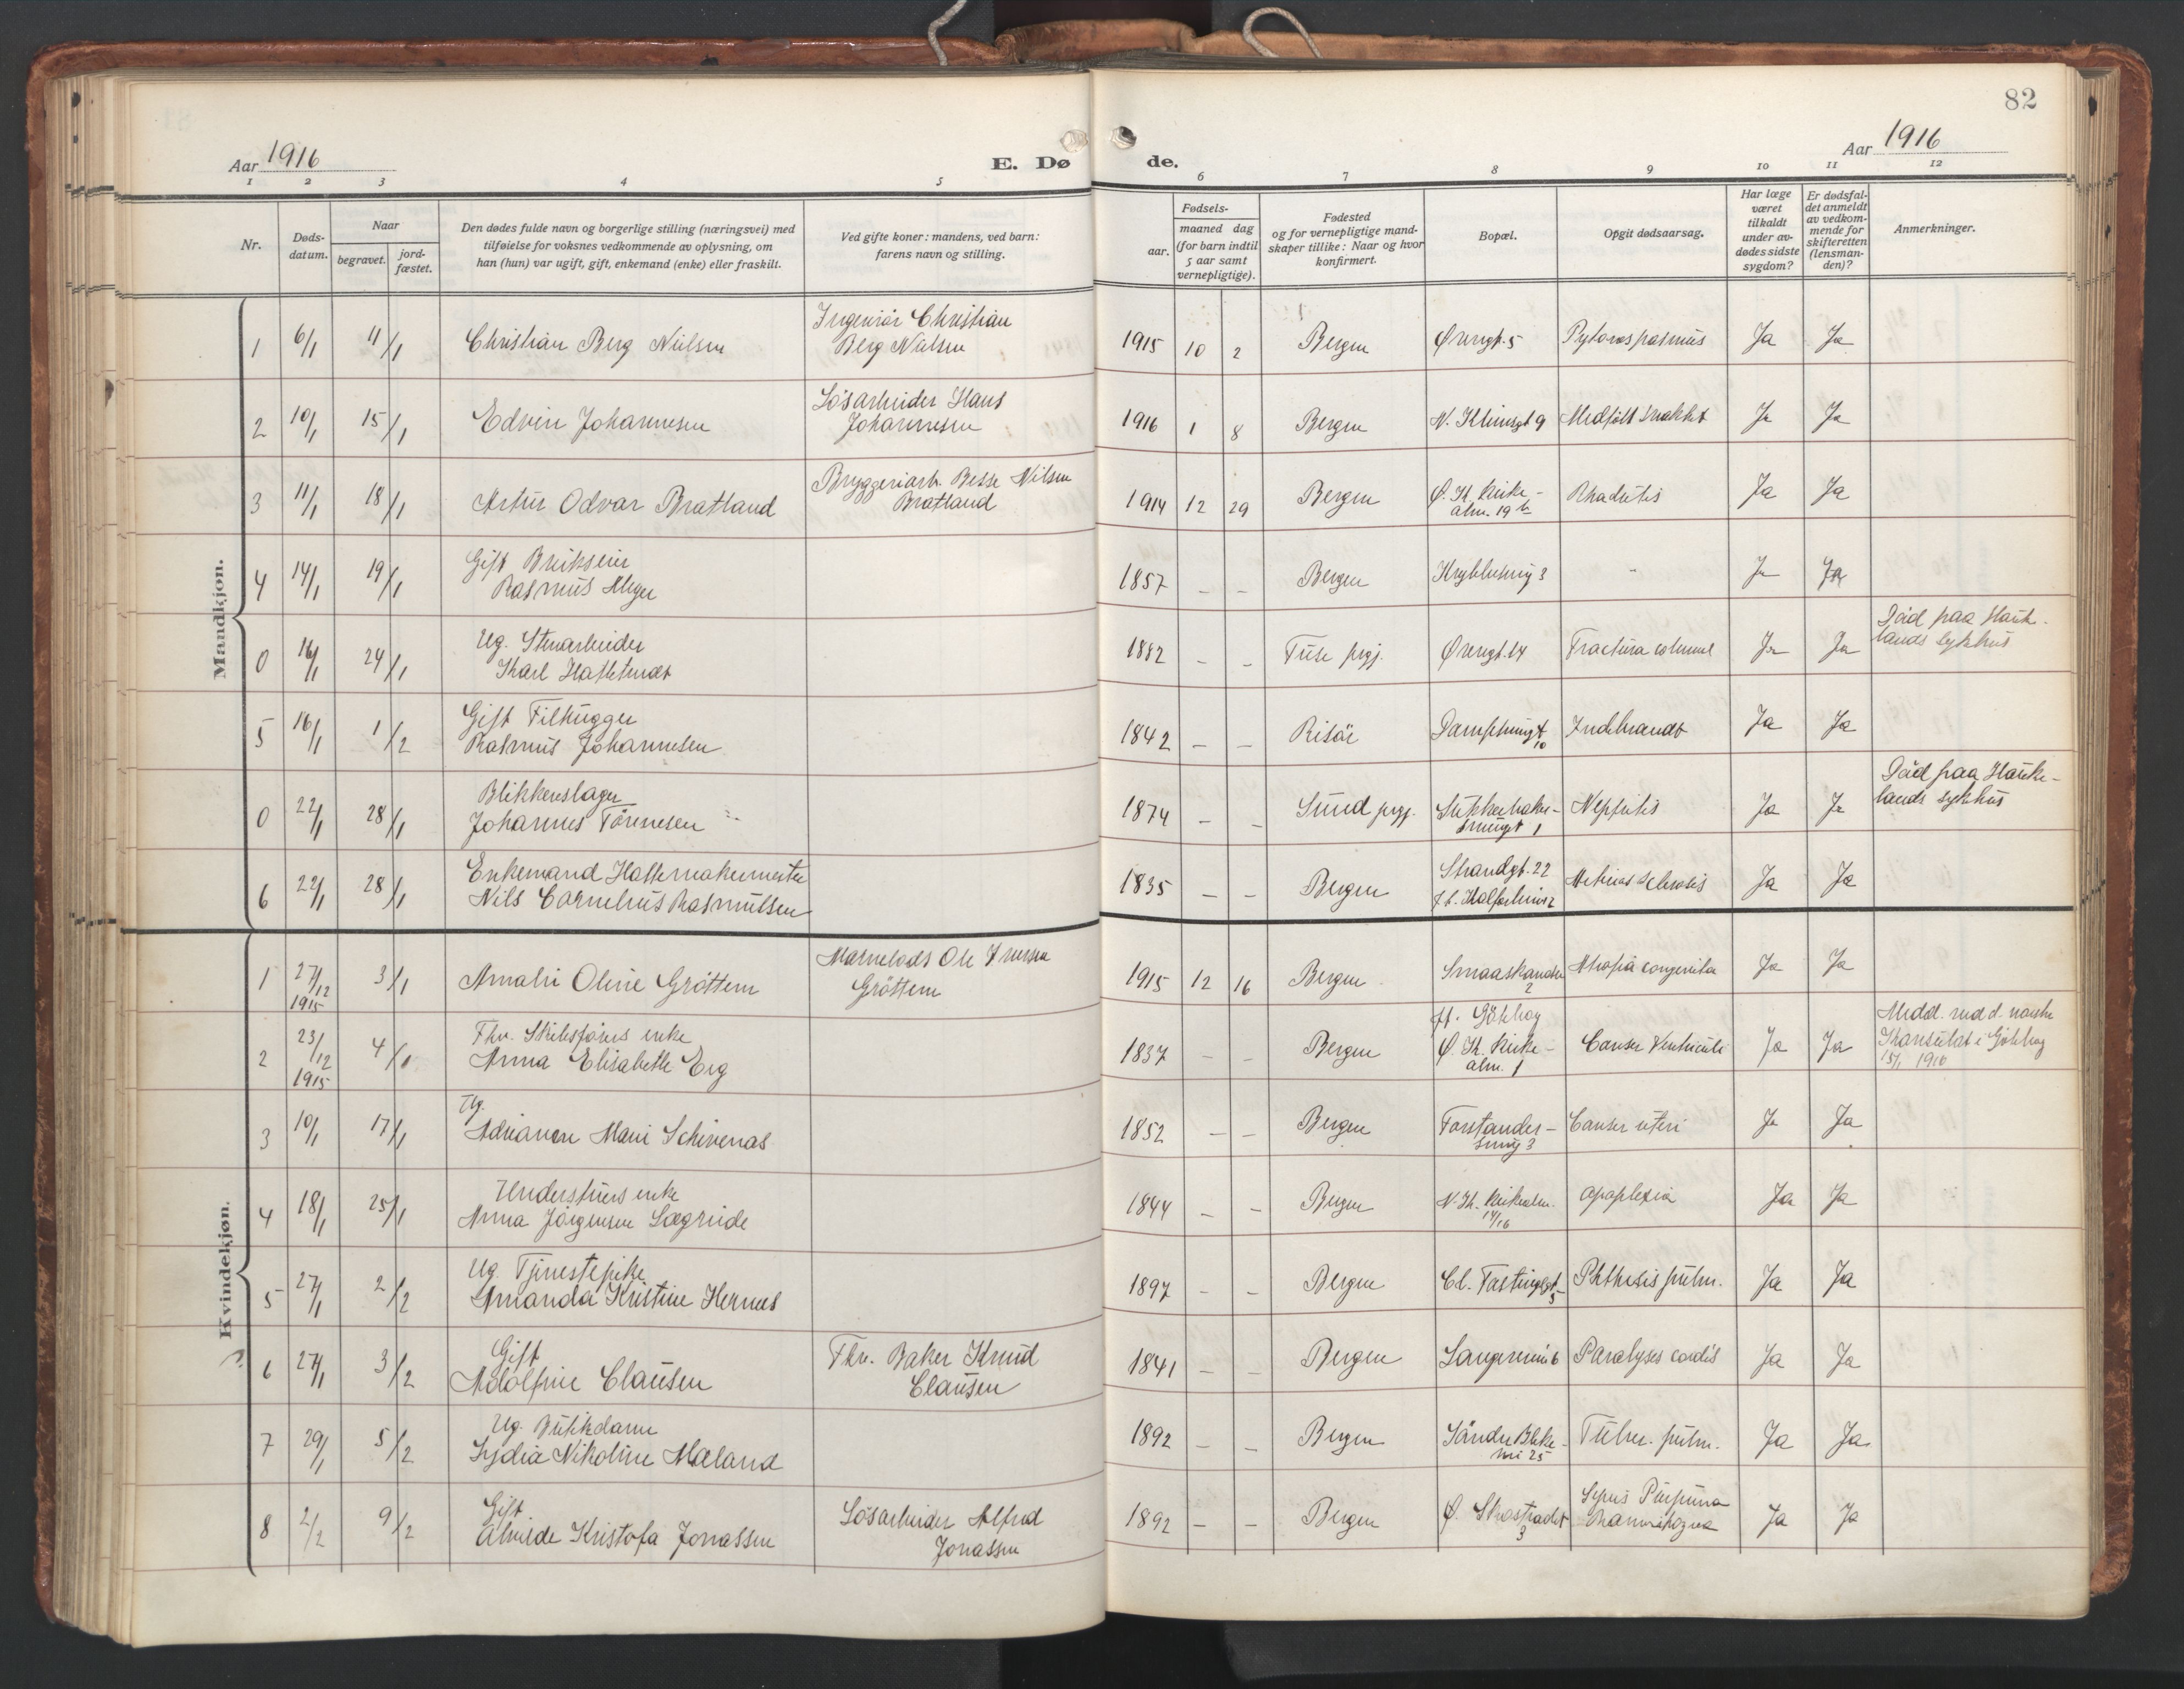 82
Aar 1916
E. Dø
de.
Aar 1916
1 2 3 4 5
6 7 8 9 10 11 12
Nr.
Døds-
datum.
Naar
begravet.
jord-
fæstet.
Den dødes fulde navn og borgerlige stilling (næringsvei) med
tilføielse for voksnes vedkommende av oplysning, om
han (hun) var ugift, gift, enkemand (enke) eller fraskilt.
Ved gifte koner: mandens, ved barn:
farens navn og stilling.
Fødsels-
aar.
maaned dag
(for barn indtil
5 aar samt
vernepligtige).
Fødested
og for vernepligtige mand-
skaper tillike: Naar og hvor
konfirmert.
Bopæl.
Opgit dødsaarsag.
Har læge
været
tilkaldt
under av-
dødes sidste
sygdom?
Er dødsfal-
det anmeldt
av vedkom-
mende for
skifteretten
(lensman-
den)?
Anmerkninger.
Mandkjøn.
Ingeniør Christian
1 6/1 11/1 Christian Berg Nielsen Berg Nielsen 1915 10 2 Bergen Øvregt. 5 Pylorospasmus Ja Ja
Løsarbeider Hans
2 10/1 15/1 Edvin Johannesen Johannesen 1916 1 8 Bergen Medfødt svakhet Ja Ja
Bryggeriarb. Nilsen
3 11/1 18/1 Artur Odvar Bratland Bratland 1914 12 29 Bergen Ø. K. Kirke- Ja Ja
alm. 19 b
Gift
4 14/1 19/1 Rasmus Meyer 1857 - - Bergen - Ja Ja
Ug. Stenarbeider Død paa Hauke-
0 16/1 24/1 Karl 1882 - - prgj. Øvregt. 14 Fractura Ja Ja lands sykehus
Gift Filhugger
5 16/1 1/2 Rasmus Johannesen 1842 - - Risör 10 Ja Ja
Blikkenslager Død paa Hauke-
0 22/1 28/1 Johannes Tönnesen 1874 - - Sund prgj. Ja Ja lands sykehus
smuget 1
Enkemand Hattemakermester Strandgt. 22
6 22/1 28/1 Nils Cornelius Rasmussen 1835 - - Bergen Ja Ja
Kvindekjøn.
Ole
1 27/12 1915 3/1 Amalie Oline Gröttem Gröttem 1915 12 16 Bergen Smaaskanden 2 Atrofia congenita Ja Ja
Fhv. Skibsførers enke
2 23/12 1915 4/1 Anna Elisabeth Erg 1837 - - Bergen Ø. K. Kirke- Cancer Ventriculi Ja Ja
alm. 1 1916
Ug.
3 10/1 17/1 Marie Schivenas 1852 - - Bergen Forstander- Cancer uteri Ja Ja
smug 3
enke
4 18/1 25/1 Anna Jörgensen Sægrude 1844 - - Bergen apoplexia Ja Ja
14/16
Ug. Tjenestepike
5 27/1 2/2 Amanda Kristine Hernes 1897 - - Bergen Cl. Fastingsgt. 5 Phthisis pulm. Ja Ja
Gift Fhv. Baker Knud
6 27/1 3/2 Adolfine Clausen Clausen 1841 - - Bergen Paralyses cordis Ja Ja
Ug. Butikdame
7 29/1 5/2 Lydia Nikoline Mæland 1892 - - Bergen Søndre Bleke- Tuber. pulm. Ja Ja
vei 25
Gift Løsarbeider Alfred Purpura
8 2/2 9/2 Alvilde Kristofa Jonassen Jonassen 1892 - - Bergen Ø. Skostrædet Ja Ja
3